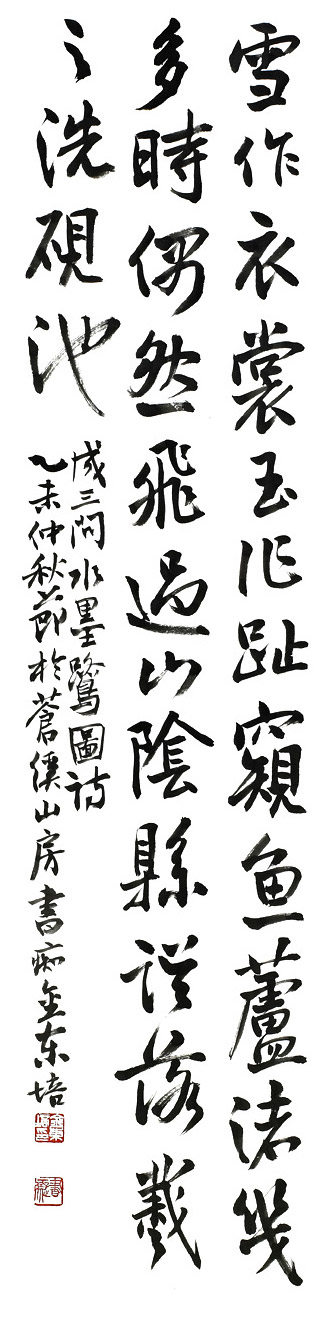 雪作衣裳玉作趾窺魚蘆渚幾
多時偶然飛過山陰縣誤落羲
之洗硯池
成三問水墨鷺圖詩
乙未仲秋節於蒼溪山房書痴金東培